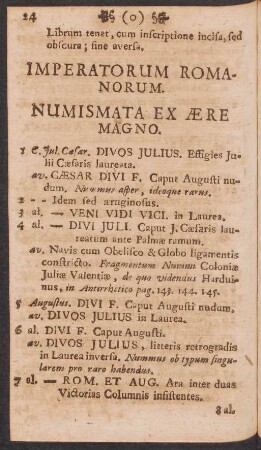 24 ❧ (o) ☙
Librum tenet, cum inscriptione incisa, sed
obscura; sine aversa.
IMPERATORUM ROMA-
NORUM.
NUMISMATA EX ÆRE
MAGNO.
1 C. Jul. Cæsar. DIVOS JULIUS. Effigies Ju-
lii Cæsaris laureata.
av. CÆSAR DIVI F. Caput Augusti nu-
dum. Nummus asper, ideoque rarus.
2 - - Idem sed æruginosus.
3 al. — VENI VIDI VICI. in Laurea.
4 al. — DIVI JULI. Caput J. Cæsaris lau-
reatum ante Palmæ ramum.
av. Navis cum Obelisco & Globo ligamentis
constricto. Fragmentum Nummi Coloniæ
Juliæ Valentiæ, de quo videndus Hardui-
nus, in Antirrhetico pag. 143. 144. 145.
5 Augustus. DIVI F. Caput Augusti nudum,
av. DIVOS JULIUS in Laurea.
6 al. DIVI F. Caput Augusti.
av. DIVOS JULIUS, litteris retrogradis
in Laurea inversa. Nummus ob typum singu-
larem pro raro habendus.
7 al. — ROM. ET AUG. Ara inter duas
Victorias Columnis insistentes.
8 al.